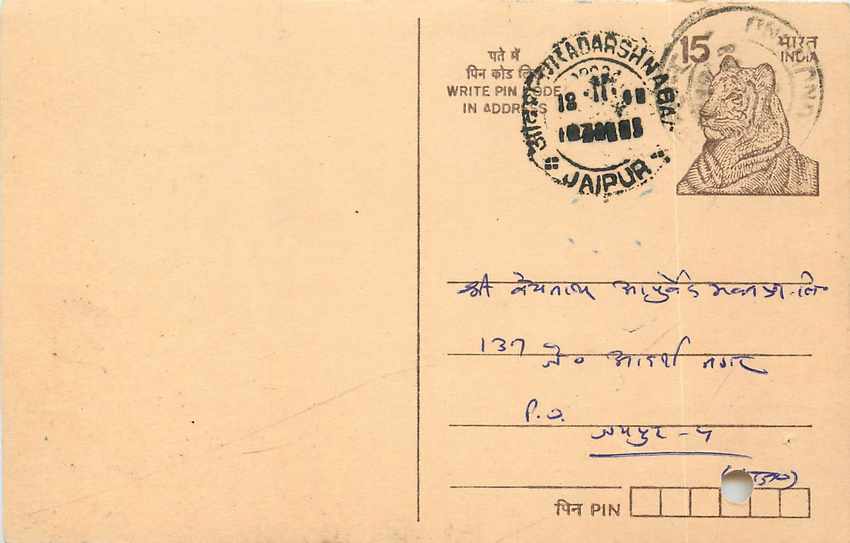 पते में
पिन कोड लिखें
WRITE PIN CODE
IN ADDRESS
ADARSH NAGAR
18 11
JAIPUR
15
भारत
INDIA
श्री वैद्यनाथ आयुर्वेद भवन प्रा. लि॰
137
जे॰ आदर्श नगर
P.O.
जयपुर - 4
(राज॰)
पिन PIN